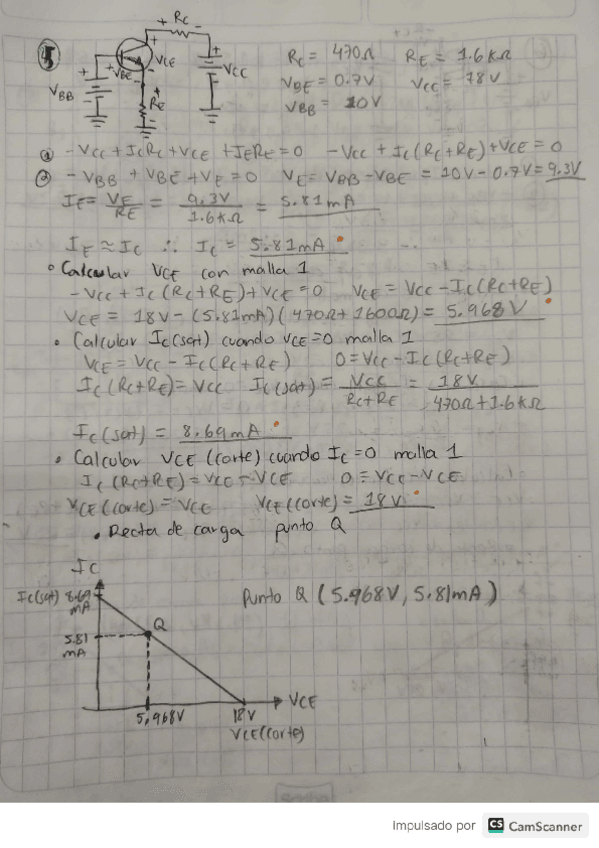 5
+ RC -
+
VCE
-
+
VBE
-
+
VCC
-
+
VBB
-
+
RE
-
RC = 470Ω RE = 1.6kΩ
VBE = 0.7V VCC = 18V
VBB = 10V
① -VCC + ICRC + VCE + IERE = 0 -VCC + IC(RC+RE) + VCE = 0
② -VBB + VBE + VE = 0 VE = VBB - VBE = 10V - 0.7V = 9.3V
IE = VE/RE = 9.3V/1.6kΩ = 5.81mA
IE ≈ IC ∴ IC = 5.81mA
• Calcular VCE con malla 1
-VCC + IC(RC+RE) + VCE = 0 VCE = VCC - IC(RC+RE)
VCE = 18V - (5.81mA)(470Ω + 1600Ω) = 5.968V
• Calcular IC(sat) cuando VCE=0 malla 1
VCE = VCC - IC(RC+RE) 0 = VCC - IC(RC+RE)
IC(RC+RE) = VCC IC(sat) = VCC/RC+RE = 18V/470Ω+1.6kΩ
IC(sat) = 8.69mA
• Calcular VCE(corte) cuando IC=0 malla 1
IC(RC+RE) = VCC - VCE 0 = VCC - VCE
VCE(corte) = VCC VCE(corte) = 18V
• Recta de carga punto Q
IC
IC(sat) 8.69 mA
Punto Q (5.968V, 5.81mA)
Q
5.81
mA
VCE
5.968V 18V
VCE(corte)
Impulsado por CS CamScanner